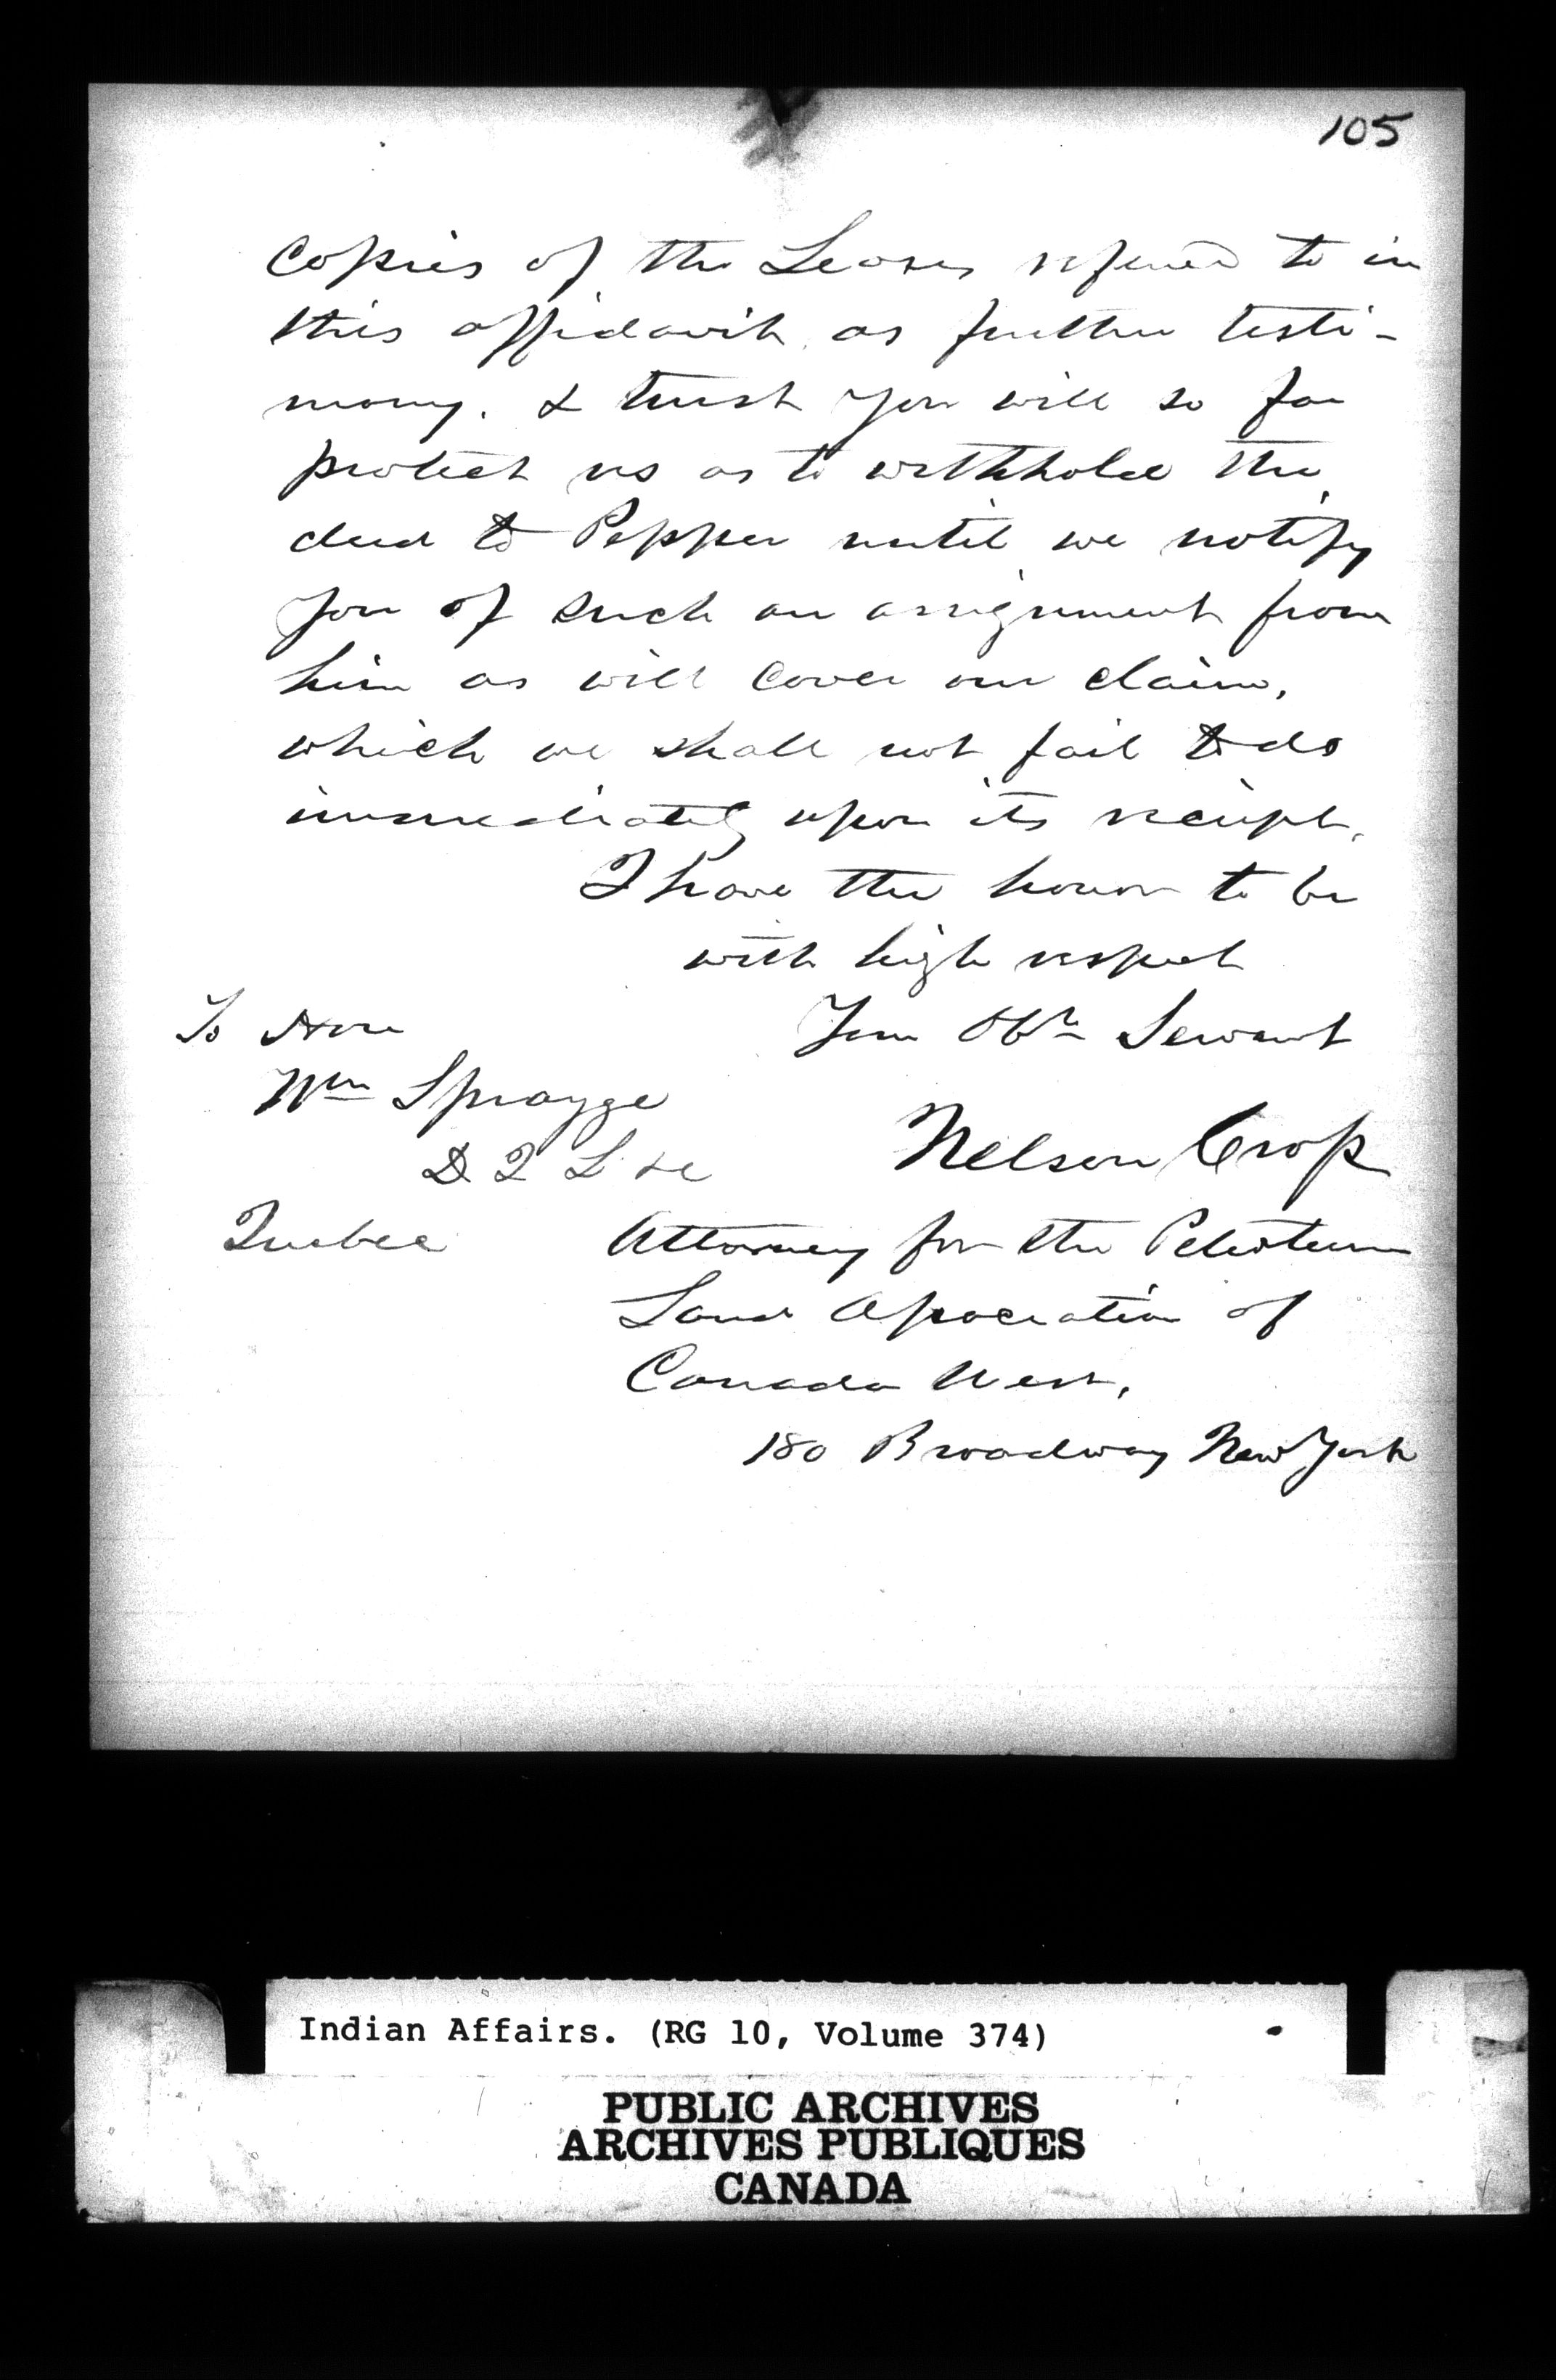 105
Copies of the Leases referred to in
this affidavit as further testi-
mony. & trust you will so far
protect us as to withhold the
deed to Pepper until we notify
you of such an assignment from
him as will cover our claim,
which we shall not fail to do
immediately upon its receipt.
I have the honor to be
with high respect
Your Obt Servant
To Hon
Wm Spragge
Nelson Cross
D S I &c
Quebec
Attorney for the Petroleum
Land Association of
Canada West,
180 Broadway New York
Indian Affairs. (RG 10, Volume 374)
PUBLIC ARCHIVES
ARCHIVES PUBLIQUES
CANADA